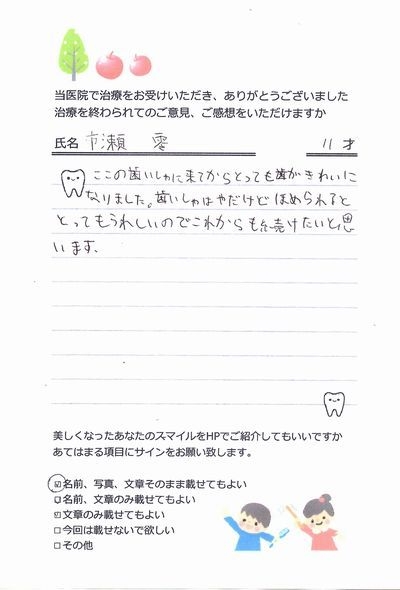 当医院で治療をお受けいただき、ありがとうございました
治療を終わられてのご意見、ご感想をいただけますか
氏名 市瀬 零 11才
ここの歯いしゃに来てからとっても歯がきれいに
なりました。歯いしゃはやだけどほめられると
とってもうれしいのでこれからも続けたいと思
います、
美しくなったあなたのスマイルをHPでご紹介してもいいですか
あてはまる項目にサインをお願い致します。
☑名前、写真、文章そのまま載せてもよい
□名前、文章のみ載せてもよい
☑文章のみ載せてもよい
□今回は載せないで欲しい
□その他